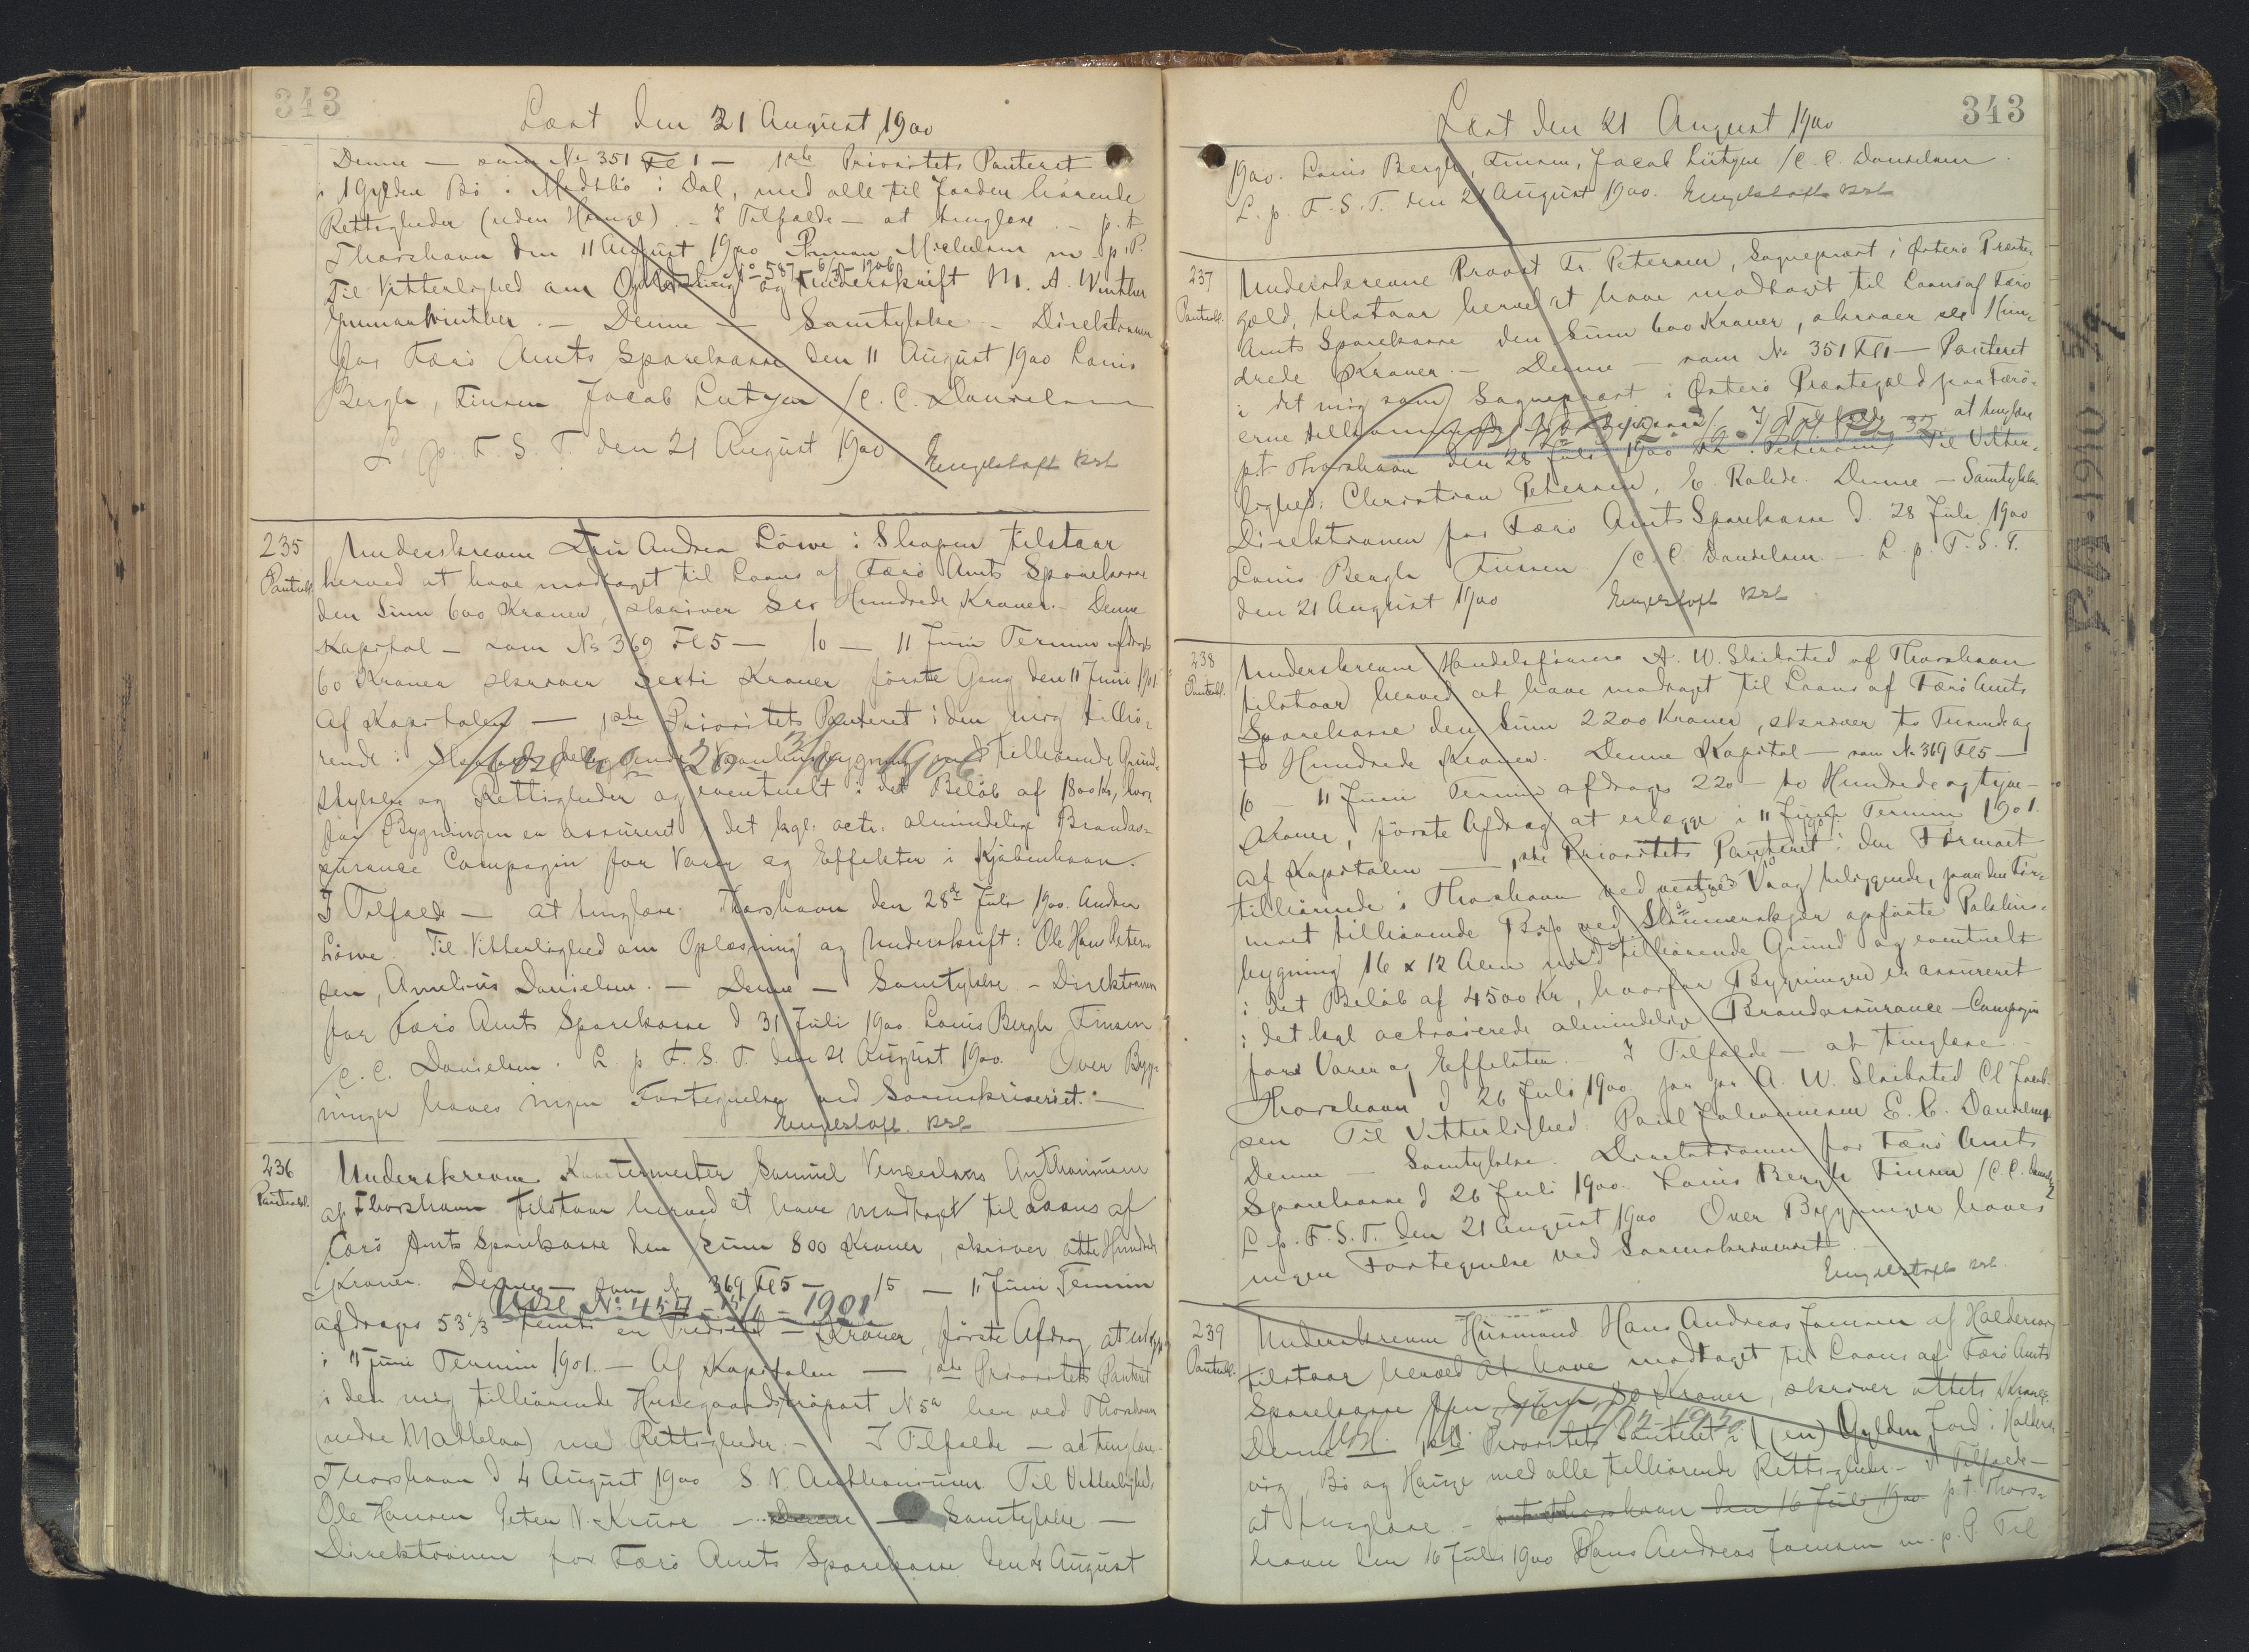 343
Læst den 21 August 1900
Denne — som No 351 Fl 1 — 1ste Prioritets Panteret
i 1 Gylden Bö i Midtbö i Dal, med alle til Jorden hörende
Rettigheder (uden Hauge) — I Tilfælde — at tinglæse — p.t.
Thorshavn den 11 August 1900 Michelsen m. p. P.
Til Vitterlighed om og Underskrift M. A. Winther
No 587 6/3 1906
Winther. — Denne — Samtykke — Direktionen
for Færö Amts Sparekasse den 11 August 1900 Louis
Bergh, Finsen Jacob Lützen /C. C. Danielsen
L. p. F. S. T. den 21 August 1900 Engelstoft kst
235
Panteobl.
Underskrevne Andrea Löwe i Skopen tilstaar
herved at have modtaget til Laans af Færö Amts Sparekasse
den Sum 600 Kroner, skriver Sex Hundrede Kroner. — Denne
Kapital — som No 369 Fl 5 — 10 — 11 Juni Termin afdrages
60 Kroner skriver Sexti Kroner förste Gang den 11 Juni 1901
Af Kapitalen — 1ste Prioritets Panteret i den mig tilhö-
rende i med tilhörende Grund
1906
Stykke og Rettigheder og eventuelt i det Belöb af 1800 Kr, hvor-
for Bygningen er assureret i det kgl. octr. almindelige Brandas-
surance Compagni for Varer og Effekter i Kjöbenhavn.
I Tilfælde — at tinglæse. Thorshavn den 28de Juli 1900. Andrea
Löwe. Til Vitterlighed om Oplæsning og Underskrift: Ole Hans Peter-
sen, Amelius Danielsen. — Denne — Samtykke — Direktionen
for Færö Amts Sparekasse d 31 Juli 1900. Louis Bergh Finsen
/C. C. Danielsen. L. p F. S. T. den 21 August 1900. Over Byg-
ningen haves ingen Fortegnelse ved Sorenskriveriet. —
Engelstoft kst
236
Panteobl.
Underskrevne Kvartermester Samuel Anthoniussen
af Thorshavn tilstaar herved at have modtaget til Laans af
Færö Amts Sparekasse den Sum 800 Kroner, skriver otte Hundrede
Kroner. Denne — som No 369 Fl 5 — 15 — 11 Juni Termin
Udsl. No 457 1901
afdrages 53 1/3 — Kroner, förste Afdrag at erlægge
i 11 Juni Termin 1901. — Af Kapitalen — 1ste Prioritets Panteret
i den mig tilhörende Husegaardstræpart N 5a her ved Thorshavn
(nedre ) med Rettigheder. — I Tilfælde — at tinglæse.
Thorshavn d 4 August 1900 S. V. Anthoniussen. Til Vitterlighed:
Ole Hansen Peter N. Kruse — Denne — Samtykke —
Direktionen for Færö Amts Sparekasse den 4 August
343
Læst den 21 August 1900
1900. Louis Bergh, Finsen, Jacob Lützen /C. C. Danielsen.
L. p. F. S. T. den 21 August 1900. Engelstoft kst
237
Panteobl.
Underskrevne Provst Fr. Petersen, Sognepræst i Österö Præste-
gæld, tilstaar herved at have modtaget til Laans af Færö
Amts Sparekasse den Sum 600 Kroner, skriver sex Hun-
drede Kroner. — Denne — som No 351 Fl 1 — Panteret
i det mig som Sognepræst i Österö Præstegæld paa Færö-
erne I Tilfælde — at tinglæse
p.t. Thorshavn den 28 Juli 1900 Fr. Petersen. Til Vitter-
lighed: Christian Petersen, E. Rolide. Denne — Samtykke
Direktionen for Færö Amts Sparekasse d. 28 Juli 1900
Louis Bergh Finsen /C. C Danielsen. — L. p. F. S. T.
den 21 August 1900 Engelstoft kst
238
Panteobl.
Underskrevne Handelsfirma A. W. Skibsted af Thorshavn
tilstaar herved at have modtaget til Laans af Færö Amts
Sparekasse den Sum 2200 Kroner, skriver to Tusinde og
to Hundrede Kroner. Denne Kapital — som No 369 Fl 5 —
10 — 11 Juni Termin afdrages 220 — to Hundrede og tyve —
Kroner, förste Afdrag at erlægge i 11 Juni Termin 1901.
Af Kapitalen — 1ste Prioritets Panteret i den Firmaet
tilhörende i Thorshavn ved vestre Vaag beliggende, paa den Fir-
maet tilhörende ved opförte Pakhus-
bygning 16 x 12 Alen med tilhörende Grund og eventuelt
i det Belöb af 4500 Kr, hvorfor Bygningen er assureret
i det kgl octroierede almindelige Brandassurance-Compagni
for Varer og Effekter. I Tilfælde — at tinglæse. —
Thorshavn d 26 Juli 1900 A. W. Skibsted Cl Jacob-
sen Til Vitterlighed: Paul Johannesen E. C. Danielsen
Denne — Samtykke. Direktionen for Færö Amts
Sparekasse d 26 Juli 1900. Louis Bergh Finsen /C. C. Danielsen
L. p. F. S. T. den 21 August 1900 Over Bygningen haves
ingen Fortegnelse ved Sorenskriveriet.
Engelstoft kst.
239
Panteobl.
Underskrevne Husmand Hans Andreas Joensen af Haldersvig
tilstaar herved at have modtaget til Laans af Færö Amts
Sparekasse den Sum 80 Kroner, skriver ottets Kroner.
Denne — 1ste Prioritets Panteret i 1 (en) Gylden Jord i Halders-
vig, Bö og Hauge med alle tilhörende Rettigheder. — I Tilfælde —
at tinglæse — p.t. Thorshavn den 16 Juli 1900 p.t. Thors-
havn den 16 Juli 1900 Hans Andreas Joensen m. p. P. Til
P.A. 1910 -